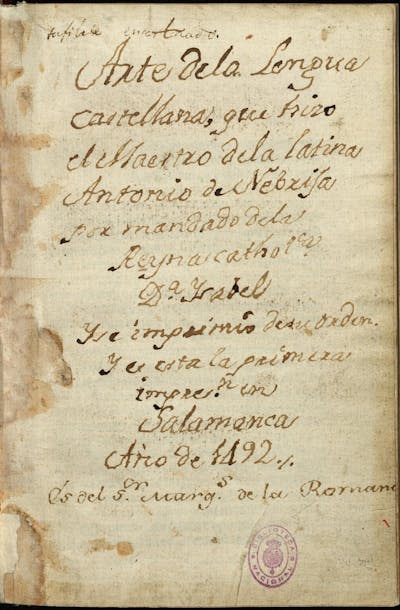 Arte de la Lengua
Castellana, que hizo
el Maestro de la latina
Antonio de Nebrisa
por mandado de la
Reyna cathol.ca
D.a Ysabel
Y se imprimió de su orden.
Y es esta la primera
impres.n en
Salamanca
Año de 1492.
Es del s.or Marq.s de la Romana
BIBLIOTECA
NACIONAL